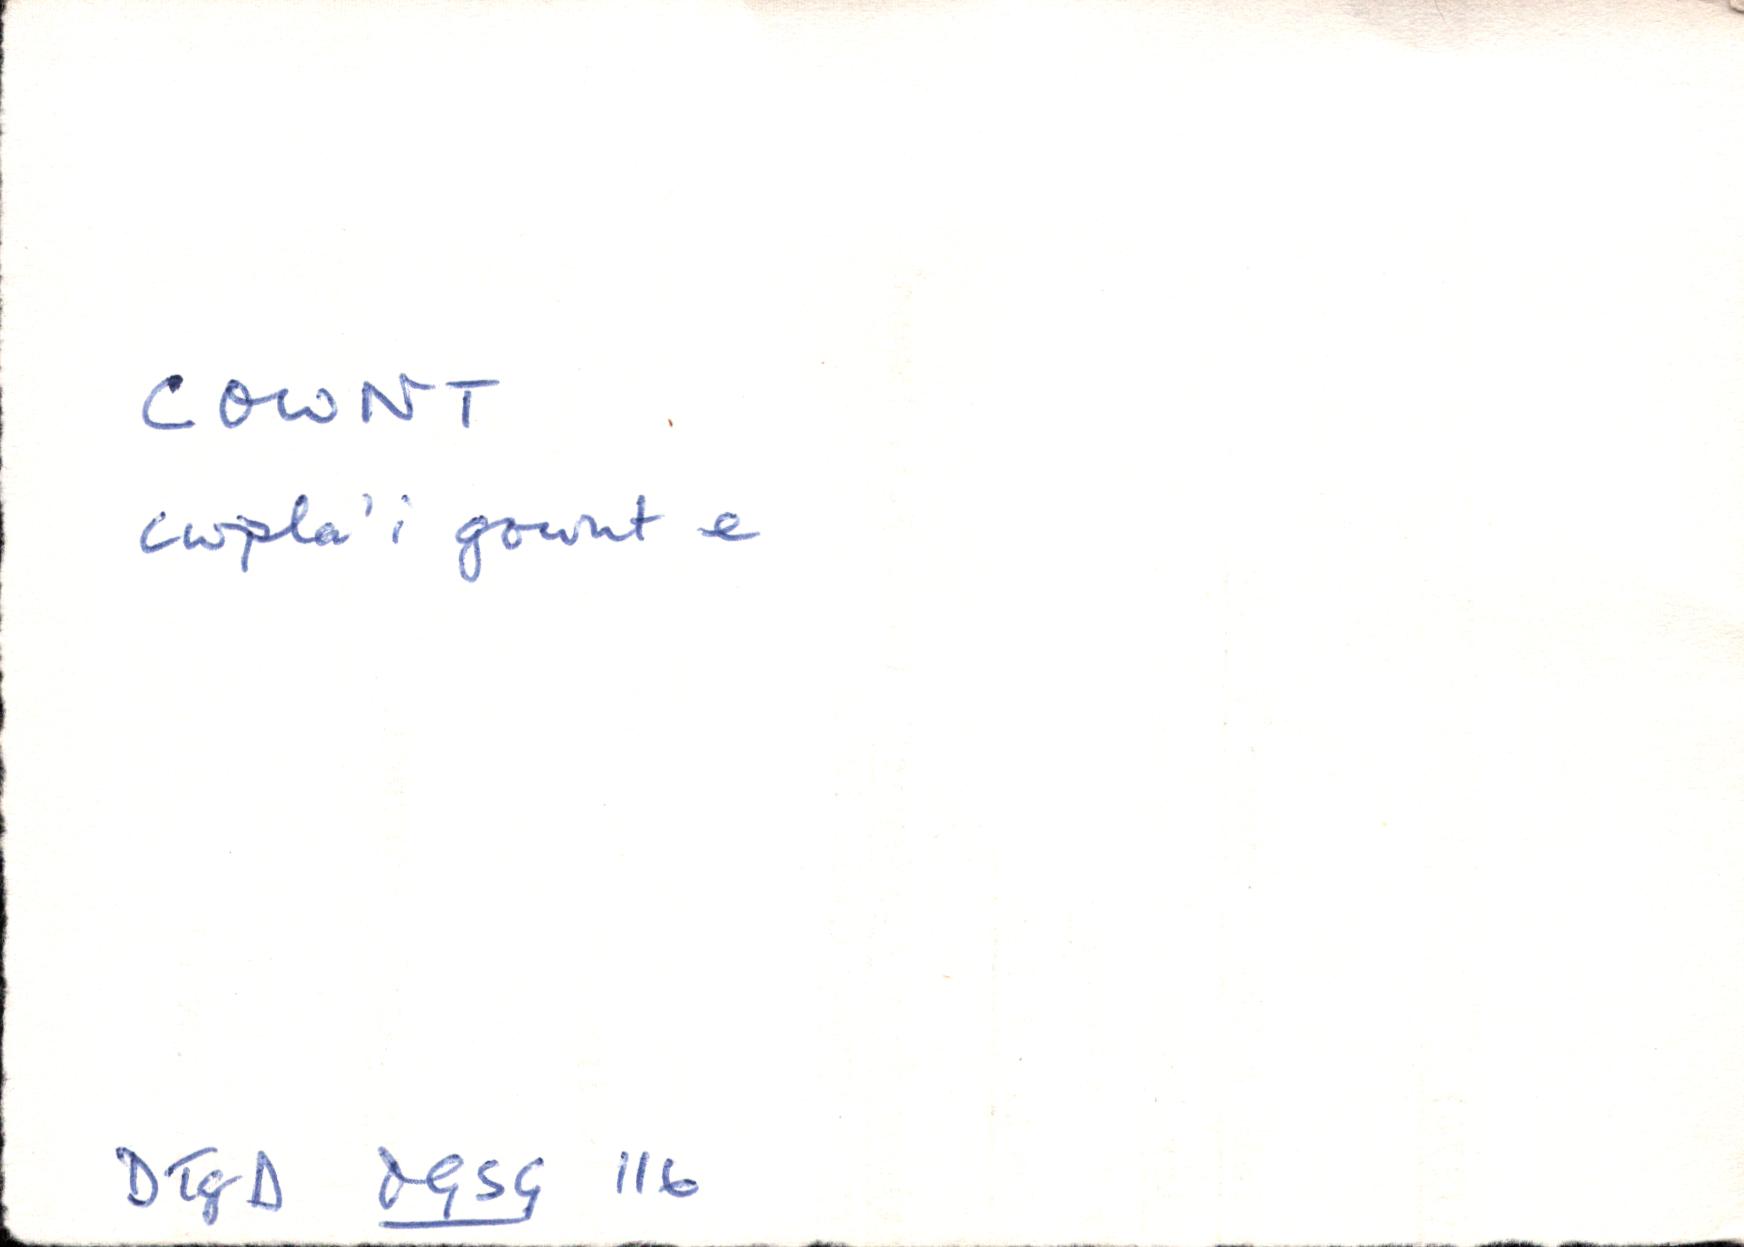 COWNT
cwpla'i gownt e
DTgD OGSG 116